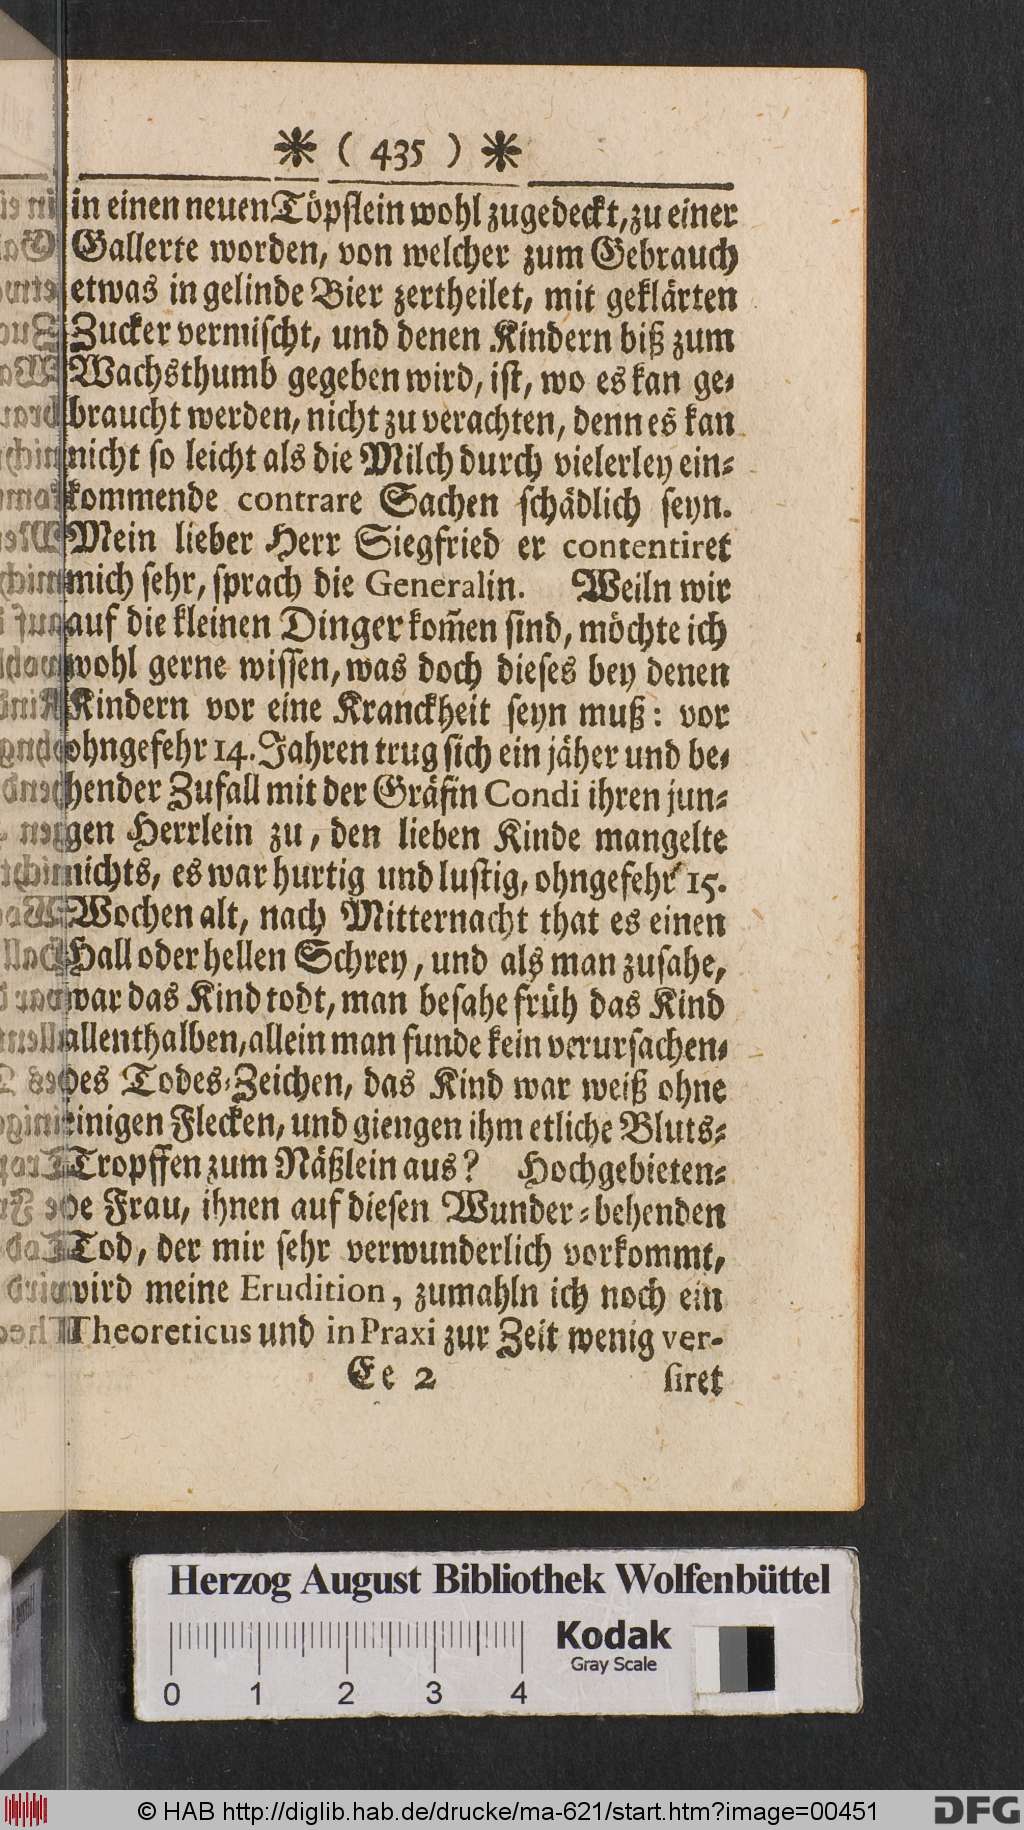 * ( 435 ) *
in einen neuen Töpflein wohl zugedeckt, zu einer
Gallerte worden, von welcher zum Gebrauch
etwas in gelinde Bier zertheilet, mit geklärten
Zucker vermischt, und denen Kindern biß zum
Wachsthumb gegeben wird, ist, wo es kan ge-
braucht werden, nicht zu verachten, denn es kan
nicht so leicht als die Milch durch vielerley ein-
kommende contrare Sachen schädlich seyn.
Mein lieber Herr Siegfried er contentiret
mich sehr, sprach die Generalin. Weiln wir
auf die kleinen Dinger kom̃en sind, möchte ich
wohl gerne wissen, was doch dieses bey denen
Kindern vor eine Kranckheit seyn muß: vor
ohngefehr 14. Jahren trug sich ein jäher und be-
hender Zufall mit der Gräfin Condi ihren jun-
gen Herrlein zu, den lieben Kinde mangelte
nichts, es war hurtig und lustig, ohngefehr 15.
Wochen alt, nach Mitternacht that es einen
Hall oder hellen Schrey, und als man zusahe,
war das Kind todt, man besahe früh das Kind
allenthalben, allein man funde kein verursachen-
des Todes-Zeichen, das Kind war weiß ohne
einigen Flecken, und giengen ihm etliche Bluts-
Tropffen zum Näßlein aus? Hochgebieten-
de Frau, ihnen auf diesen Wunder-behenden
Tod, der mir sehr verwunderlich vorkommt,
wird meine Erudition, zumahln ich noch ein
Theoreticus und in Praxi zur Zeit wenig ver-
Ee 2 siret
Herzog August Bibliothek Wolfenbüttel
Kodak
Gray Scale
0 1 2 3 4
© HAB http://diglib.hab.de/drucke/ma-621/start.htm?image=00451
DFG